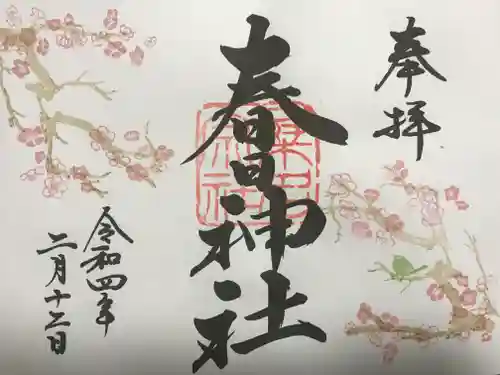 奉拝
春日神社
令和四年
二月十二日